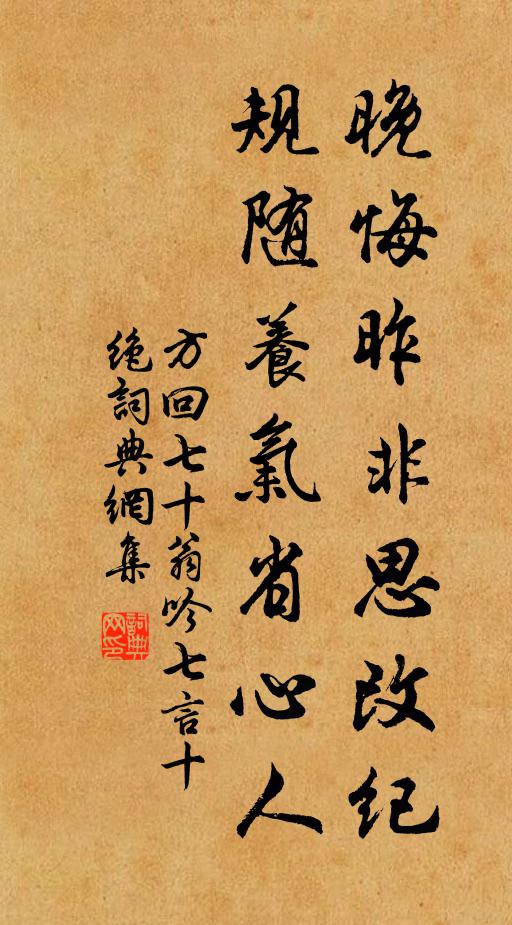 晚悔昨非思改紀
規随養氣省心人
方回七十翁吟七言十
絕詞典網集
詞典网印